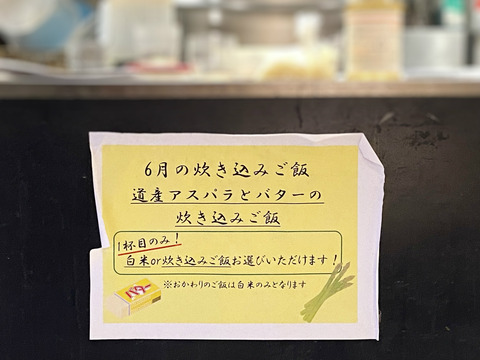 6月の炊き込みご飯
道産アスパラとバターの
炊き込みご飯
1杯目のみ!
白米or炊き込みご飯お選びいただけます!
※おかわりのご飯は白米のみとなります
バター